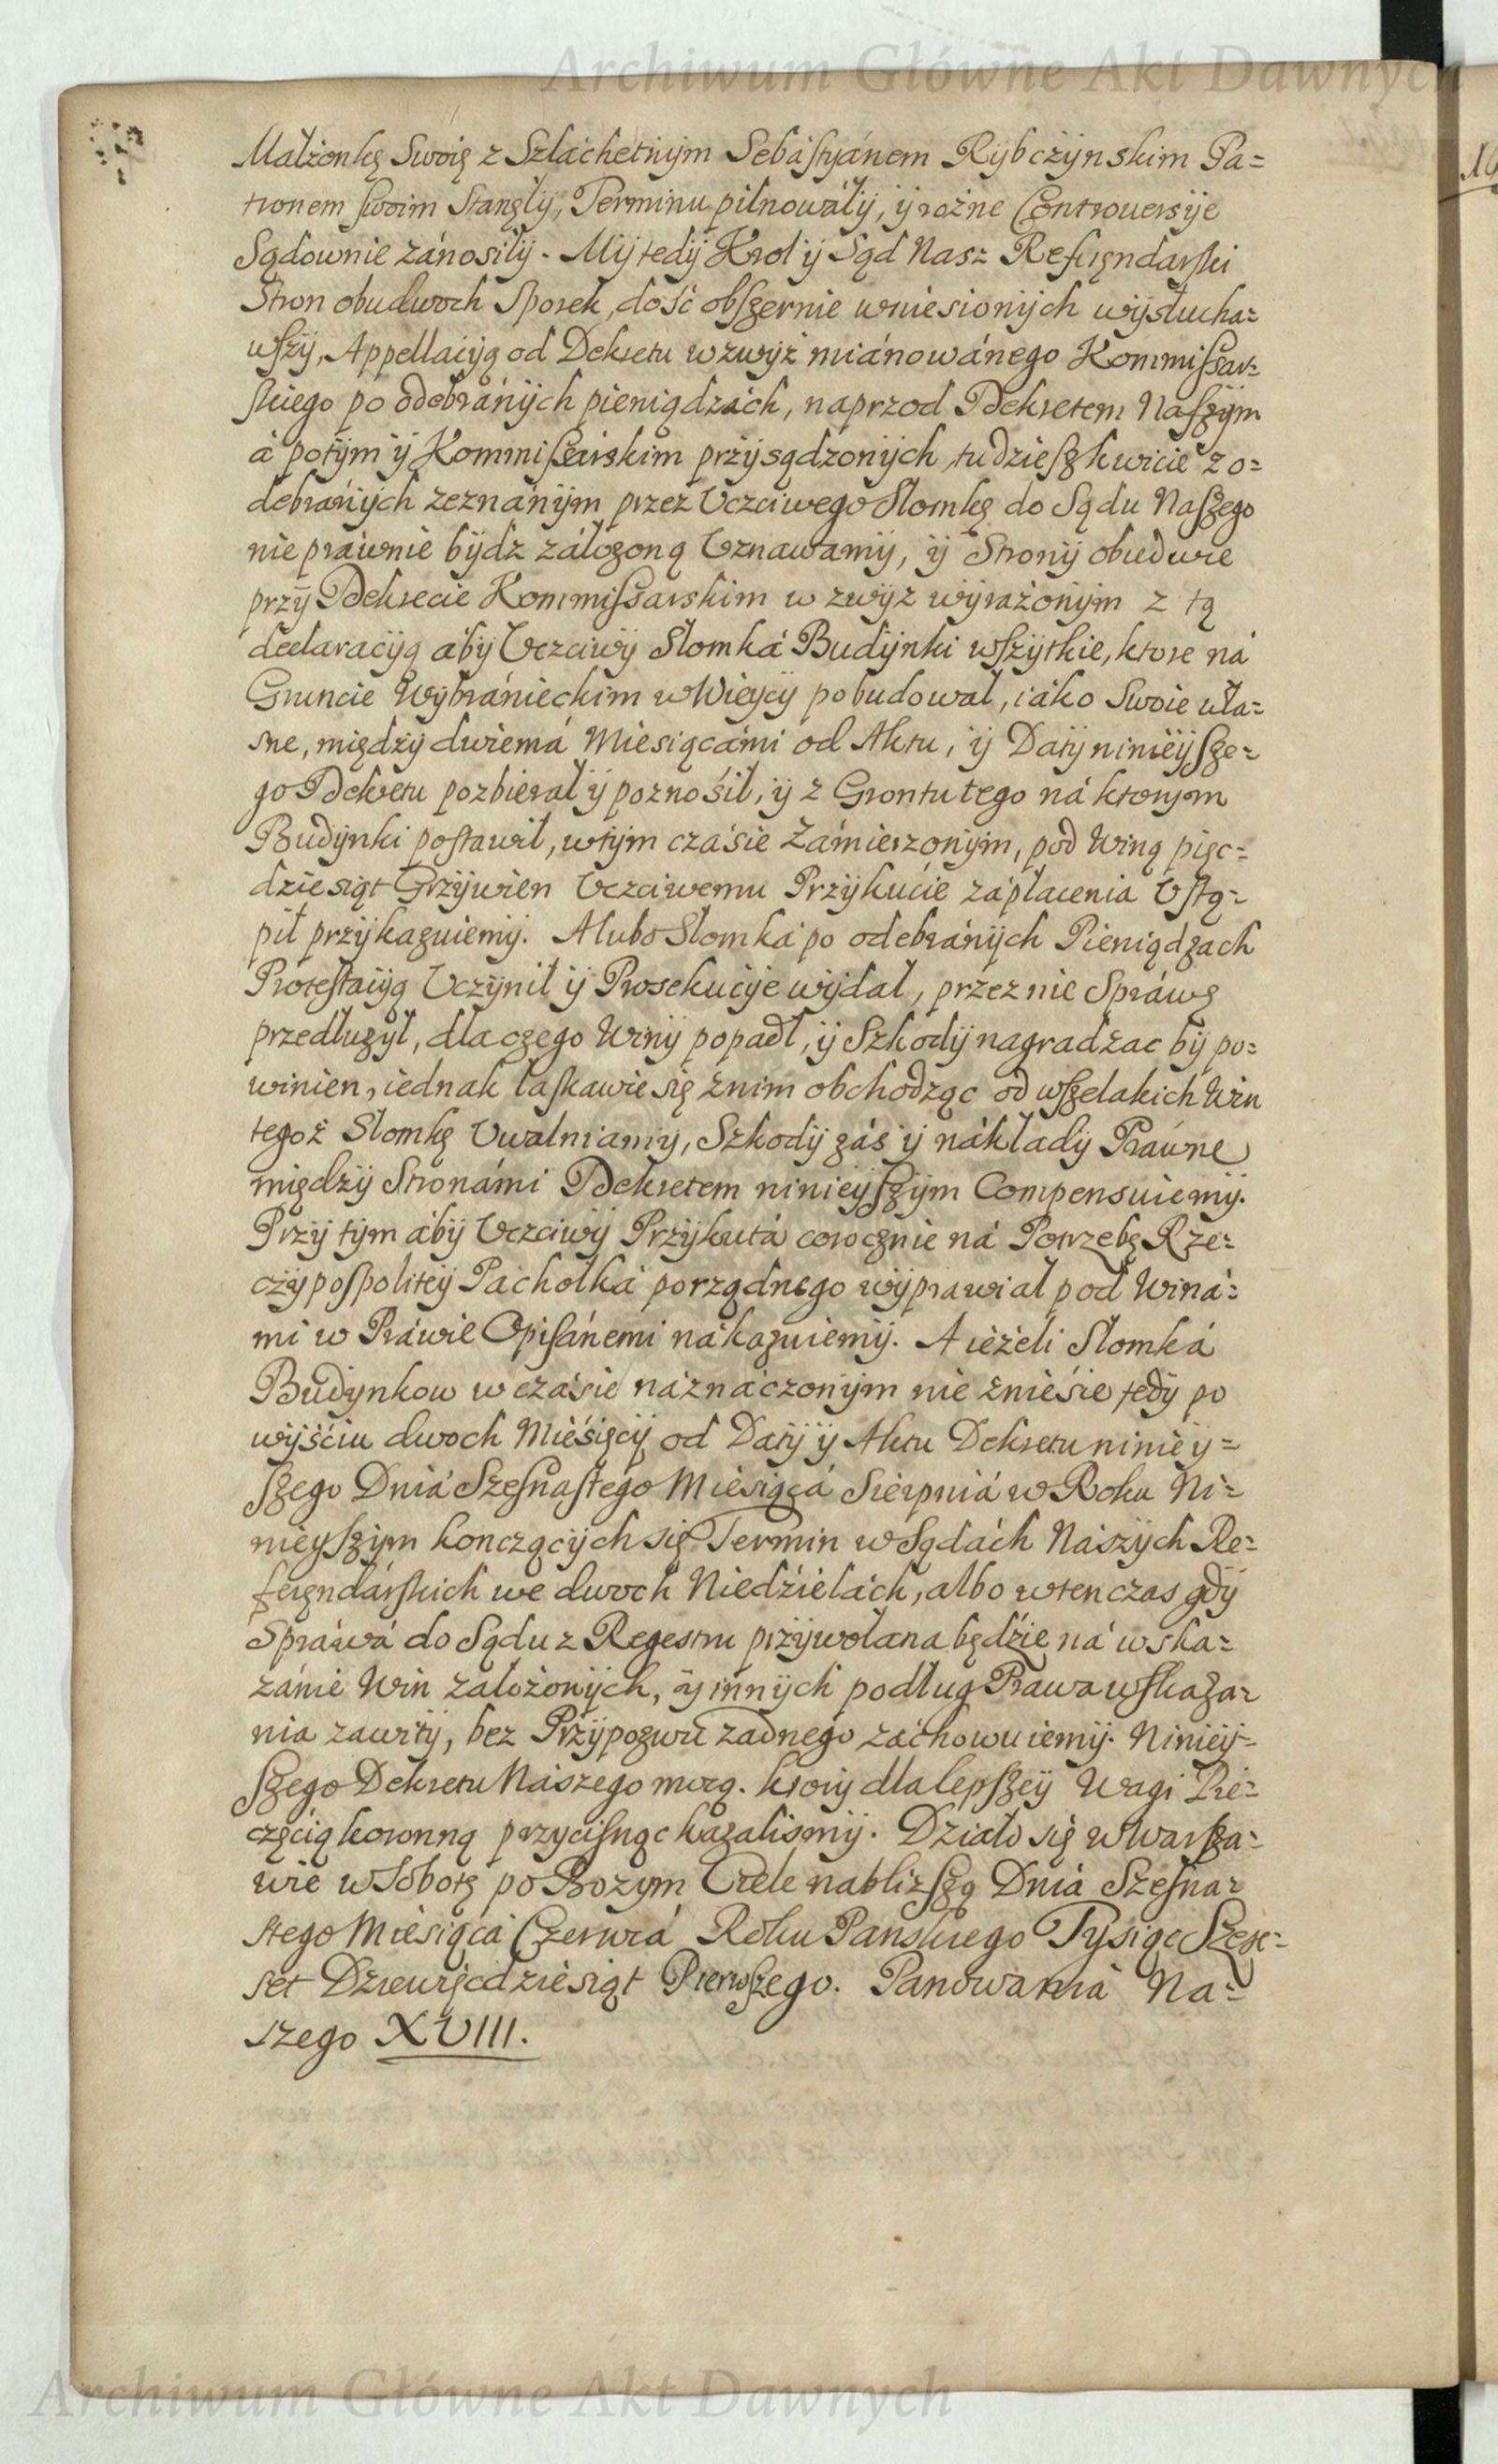 Archiwum Główne Akt Dawnych
Małżonkę Swoię z Szláchetnym Sebástyánem Rybczynskim Pa=
tronem swoim stanęly, Terminu pilnowály, y rożne Controversye
Sądownie zánosily. My tedy Krol y Sąd Nasz Referęndarski
Stron obudwoch Sporek, dość obszernie wniesionych wysłucha=
wszy, Appellacyą od Dekretu wzwyż miánowánego Kommissar=
skiego po odebránych pieniądzách, naprzod Dekretem Naszym
á potym y Kommissárskim przysądzonych, tudziesz kwicie z o=
debránych zeznánym przez Uczciwego Słomkę do Sądu Naszego
nie práwnie bydz záłożoną Uznawamy, y Strony obiedwie
przy Dekrecie Kommissarskim w zwyz wyrażonym z tą
declaracyą áby Uczciwy Słomká Budynki wszytkie, ktore ná
Gruncie Wybránieckim w Wieycy pobudował, iáko Swoie wła=
sne, między dwiemá Miesiącámi od Aktu, y Daty ninieysze=
go Dekretu pozbierał y poznośił, y z Grontu tego ná ktorym
Budynki postawił, w tym czásie Zámierzonym, pod Winą pięc=
dziesiąt Grzywien Uczciwemu Przykucie zápłacenia Ustą=
pił przykazuiemy. A lubo Słomká po odebránych Pieniądzach
Protestacyą Uczynił y Prosekucye wydał, przez nie Spráwę
przedłuzył, dla czego Winy popadł, y Szkody nagradzac by po=
winien, iednak łaskawie się z nim obchodząc od wszelakich Win
tegoż Słomkę Uwalniamy, Szkody zás y nákłady Práwne
między Stronámi Dekretem ninieyszym Compensuiemy.
Przy tym áby Uczciwy Przykutá corocznie ná Potrzebę Rze=
czypospolitey Páchołká porządnego wyprawiał pod Winá=
mi w Práwie Opisánemi nákazuiemy. A ieżeli Słomká
Budynkow w czásie náznáczonym nie znieśie tedy po
wyśćiu dwoch Mieśięcy od Daty y Aktu Dekretu niniey=
szego Dniá Szesnastego Miesiącá Sierpniá w Roku Ni=
nieyszym konczących się Termin w Sądách Nászych Re=
feręndárskich we dwoch Niedzielách, albo wtenczas gdy
Spráwá do Sądu z Regestru przywołana będzie ná wska=
zánie Win założonych, y innych podług Prawa wskaza=
nia zawity, bez Przypozwu zadnego záchowuiemy. Niniey=
szego Dekretu Nászego mocą. ktory dla lepszey Wagi Pie=
częcią koronną przycisnąc kazalismy. Działo się w Warsza=
wie w Sobotę po Bozym Ciele nabliższą Dniá Szesna=
stego Miesiącá Czerwcá Roku Panskiego Tysiąc Szesc=
set Dziewięcdziesiąt Pierwszego. Panowaniá Na=
szego XVIII.
Archiwum Główne Akt Dawnych